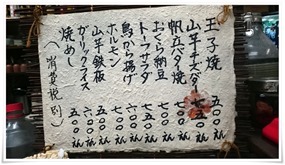 玉子焼 五〇〇えん
山芋チーズバター 七五〇えん
帆立バター焼 えん
おくら納豆 五〇〇えん
トーフサラダ えん
鳥から揚げ えん
ホルモン えん
山芋鉄板 えん
ガーリックライス 六〇〇えん
焼めし 五〇〇えん
(消費税別)